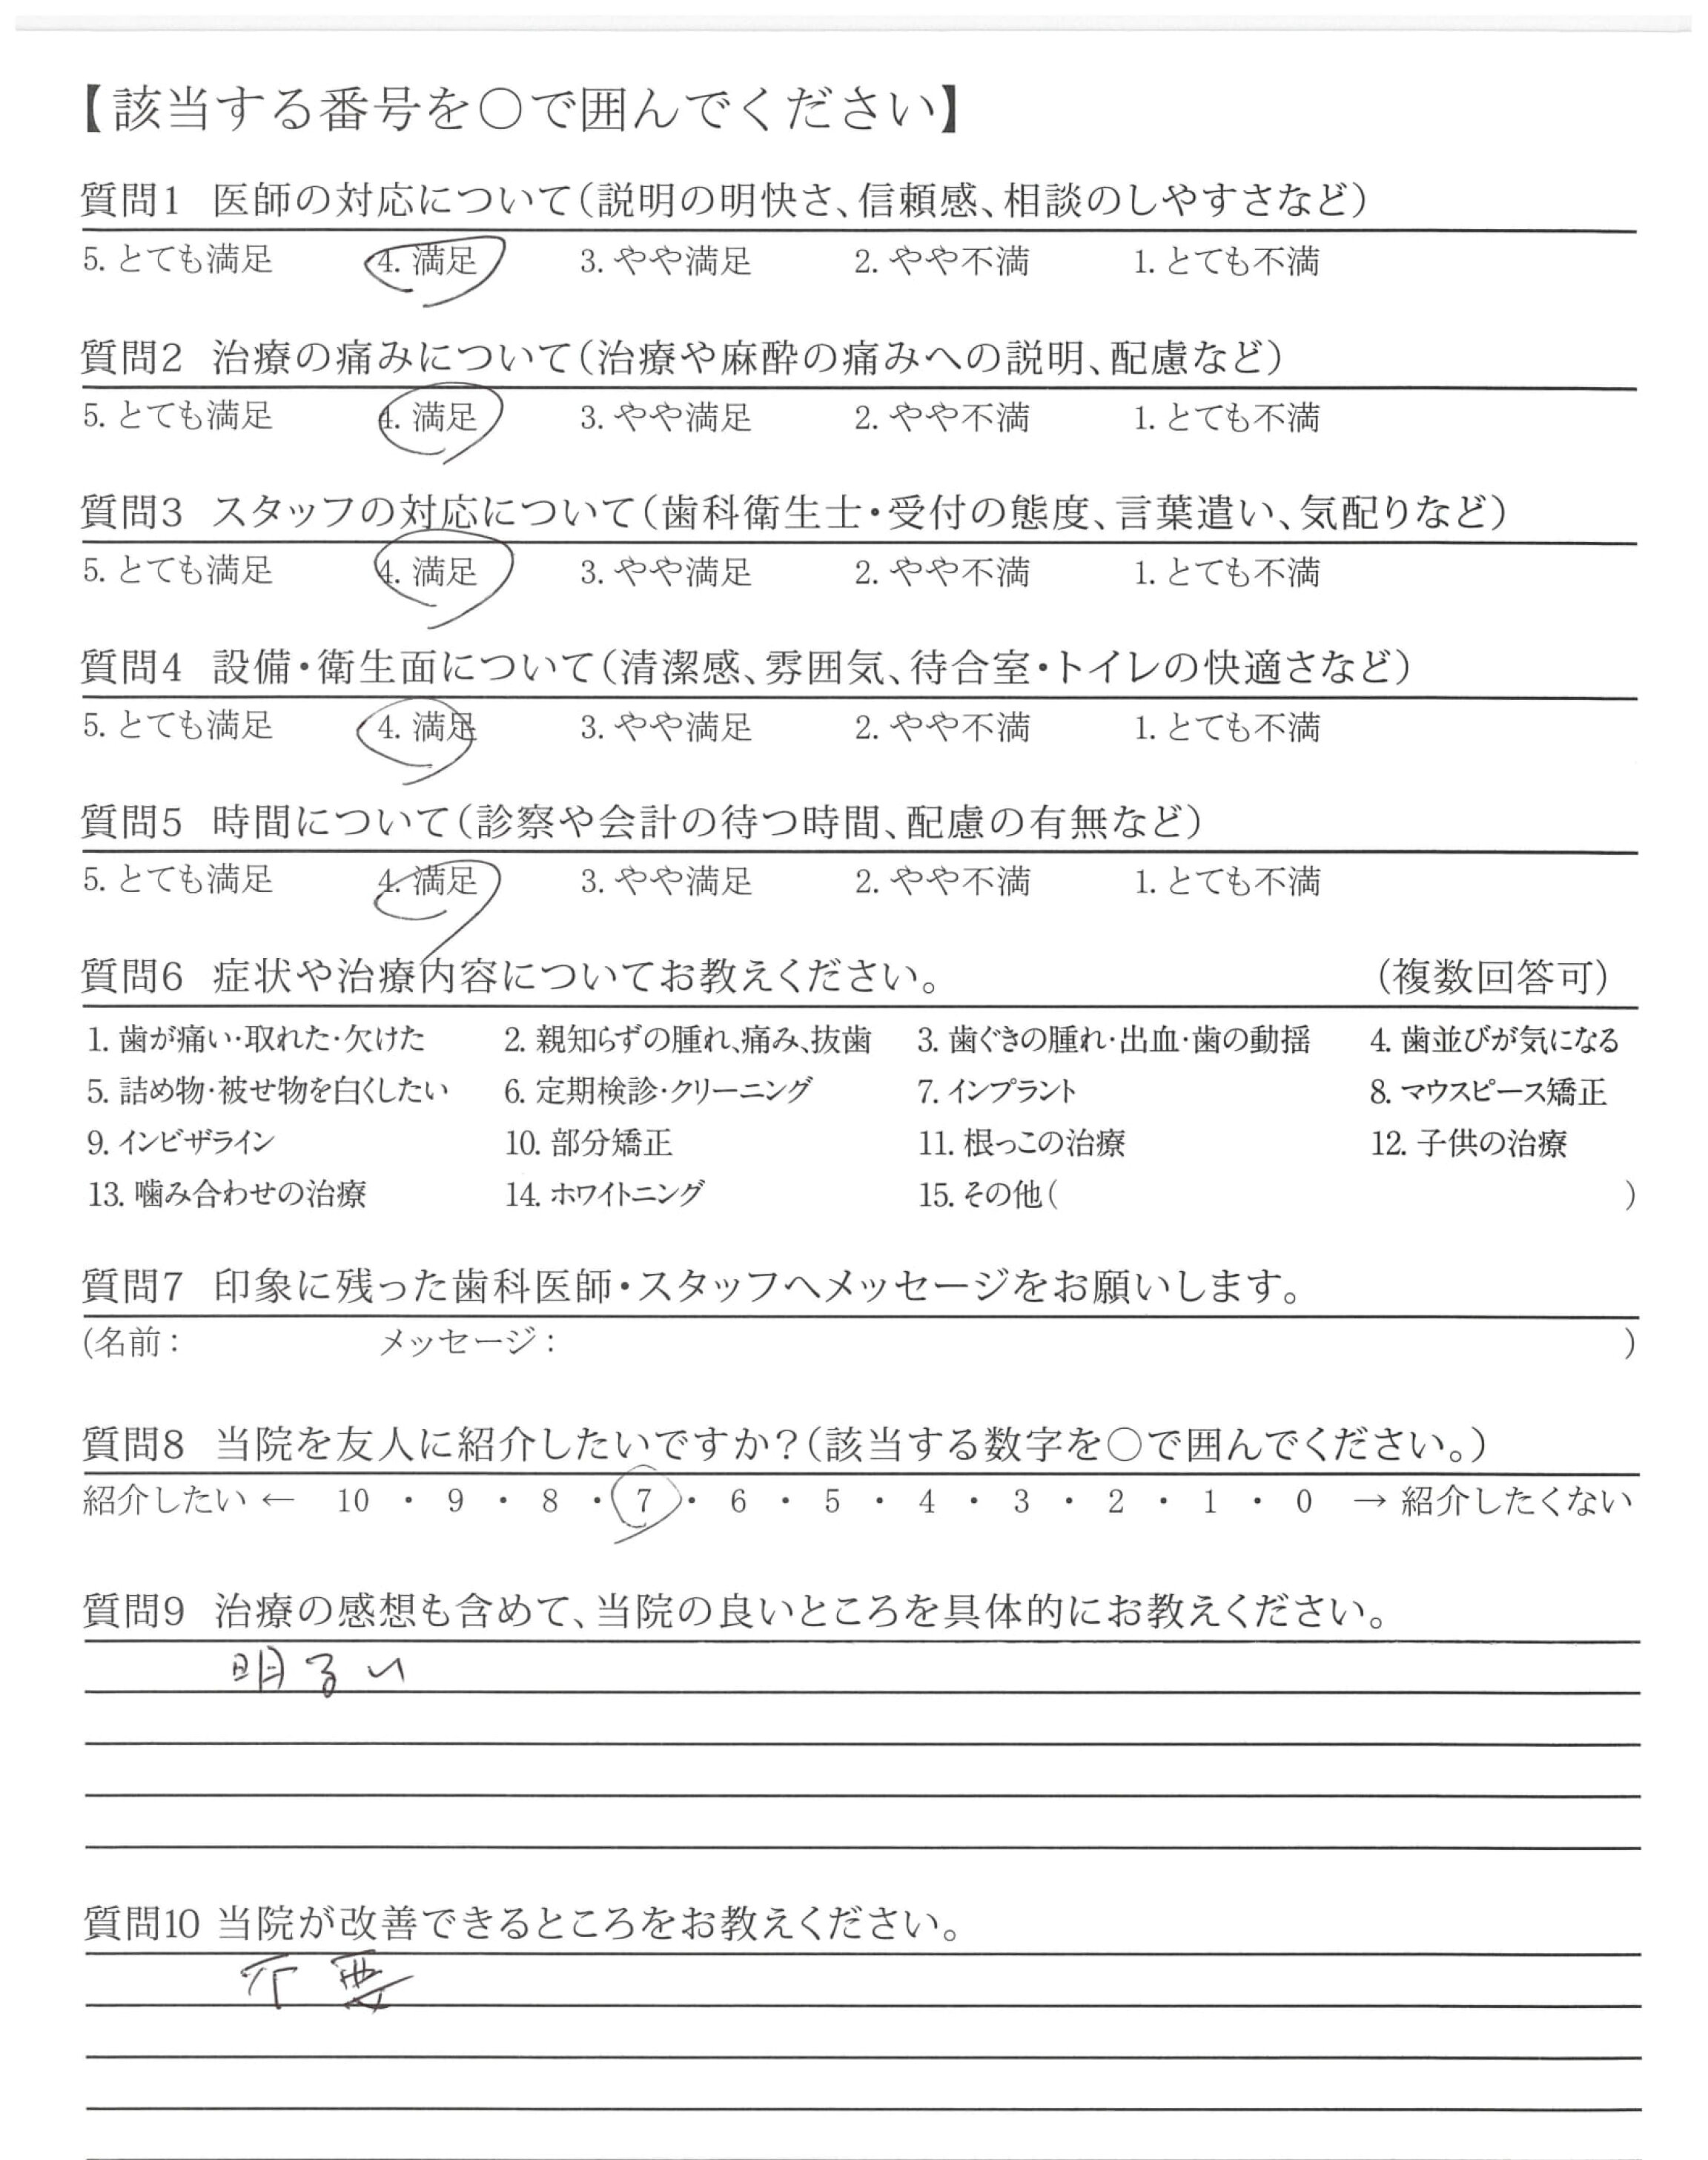 【該当する番号を○で囲んでください】
質問1 医師の対応について（説明の明快さ、信頼感、相談のしやすさなど）
5. とても満足 4. 満足 3. やや満足 2. やや不満 1. とても不満
質問2 治療の痛みについて（治療や麻酔の痛みへの説明、配慮など）
5. とても満足 4. 満足 3. やや満足 2. やや不満 1. とても不満
質問3 スタッフの対応について（歯科衛生士・受付の態度、言葉遣い、気配りなど）
5. とても満足 4. 満足 3. やや満足 2. やや不満 1. とても不満
質問4 設備・衛生面について（清潔感、雰囲気、待合室・トイレの快適さなど）
5. とても満足 4. 満足 3. やや満足 2. やや不満 1. とても不満
質問5 時間について（診察や会計の待つ時間、配慮の有無など）
5. とても満足 4. 満足 3. やや満足 2. やや不満 1. とても不満
質問6 症状や治療内容についてお教えください。 （複数回答可）
1. 歯が痛い・取れた・欠けた 2. 親知らずの腫れ、痛み、抜歯 3. 歯ぐきの腫れ・出血・歯の動揺 4. 歯並びが気になる
5. 詰め物・被せ物を白くしたい 6. 定期検診・クリーニング 7. インプラント 8. マウスピース矯正
9. インビザライン 10. 部分矯正 11. 根っこの治療 12. 子供の治療
13. 噛み合わせの治療 14. ホワイトニング 15. その他（ ）
質問7 印象に残った歯科医師・スタッフへメッセージをお願いします。
(名前： メッセージ： )
質問8 当院を友人に紹介したいですか？（該当する数字を○で囲んでください。）
紹介したい ← 10 ・ 9 ・ 8 ・ 7 ・ 6 ・ 5 ・ 4 ・ 3 ・ 2 ・ 1 ・ 0 → 紹介したくない
質問9 治療の感想も含めて、当院の良いところを具体的にお教えください。
明るい
質問10 当院が改善できるところをお教えください。
不要